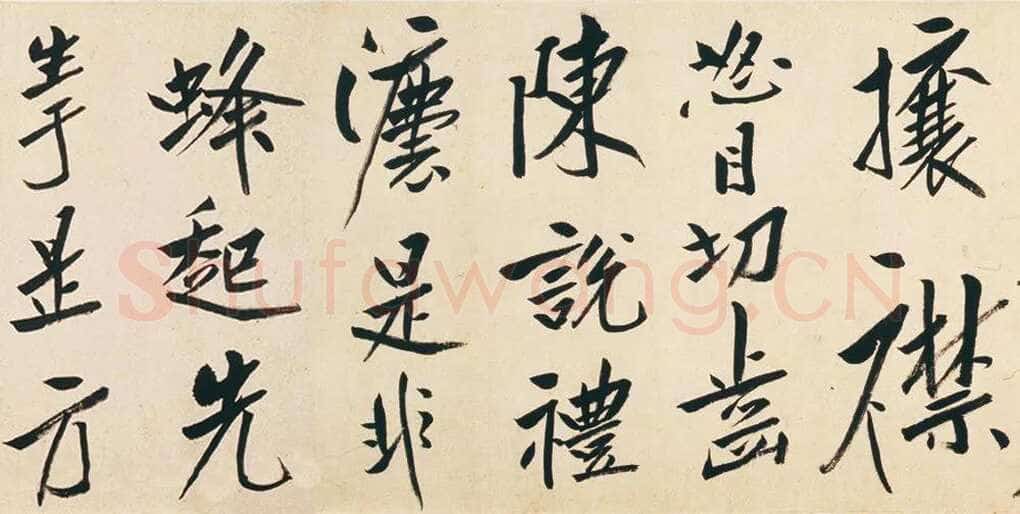 攘襟
怒目切齒
陳說禮
灋是非
蜂起先
生于是方
Shufawang.CN